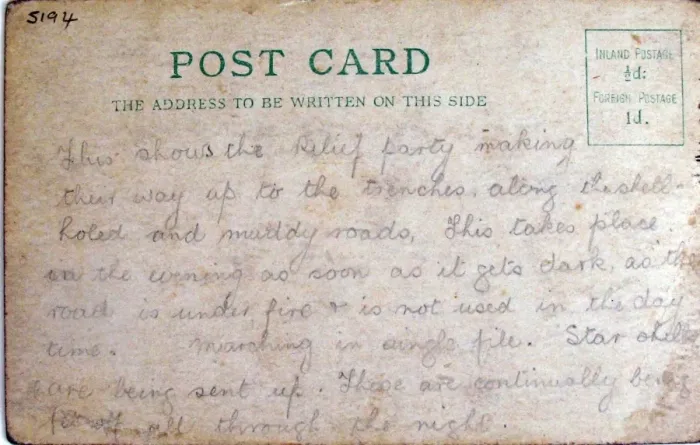 5194
POST CARD
THE ADDRESS TO BE WRITTEN ON THIS SIDE
INLAND POSTAGE
½d:
FOREIGN POSTAGE
1d.
This shows the Relief party making
their way up to the trenches, along the shell-
holed and muddy roads, This takes place
in the evening as soon as it gets dark, as the
road is under fire & is not used in the day
time. Marching in single file. Star shells
are being sent up. These are continually being
all through the night.